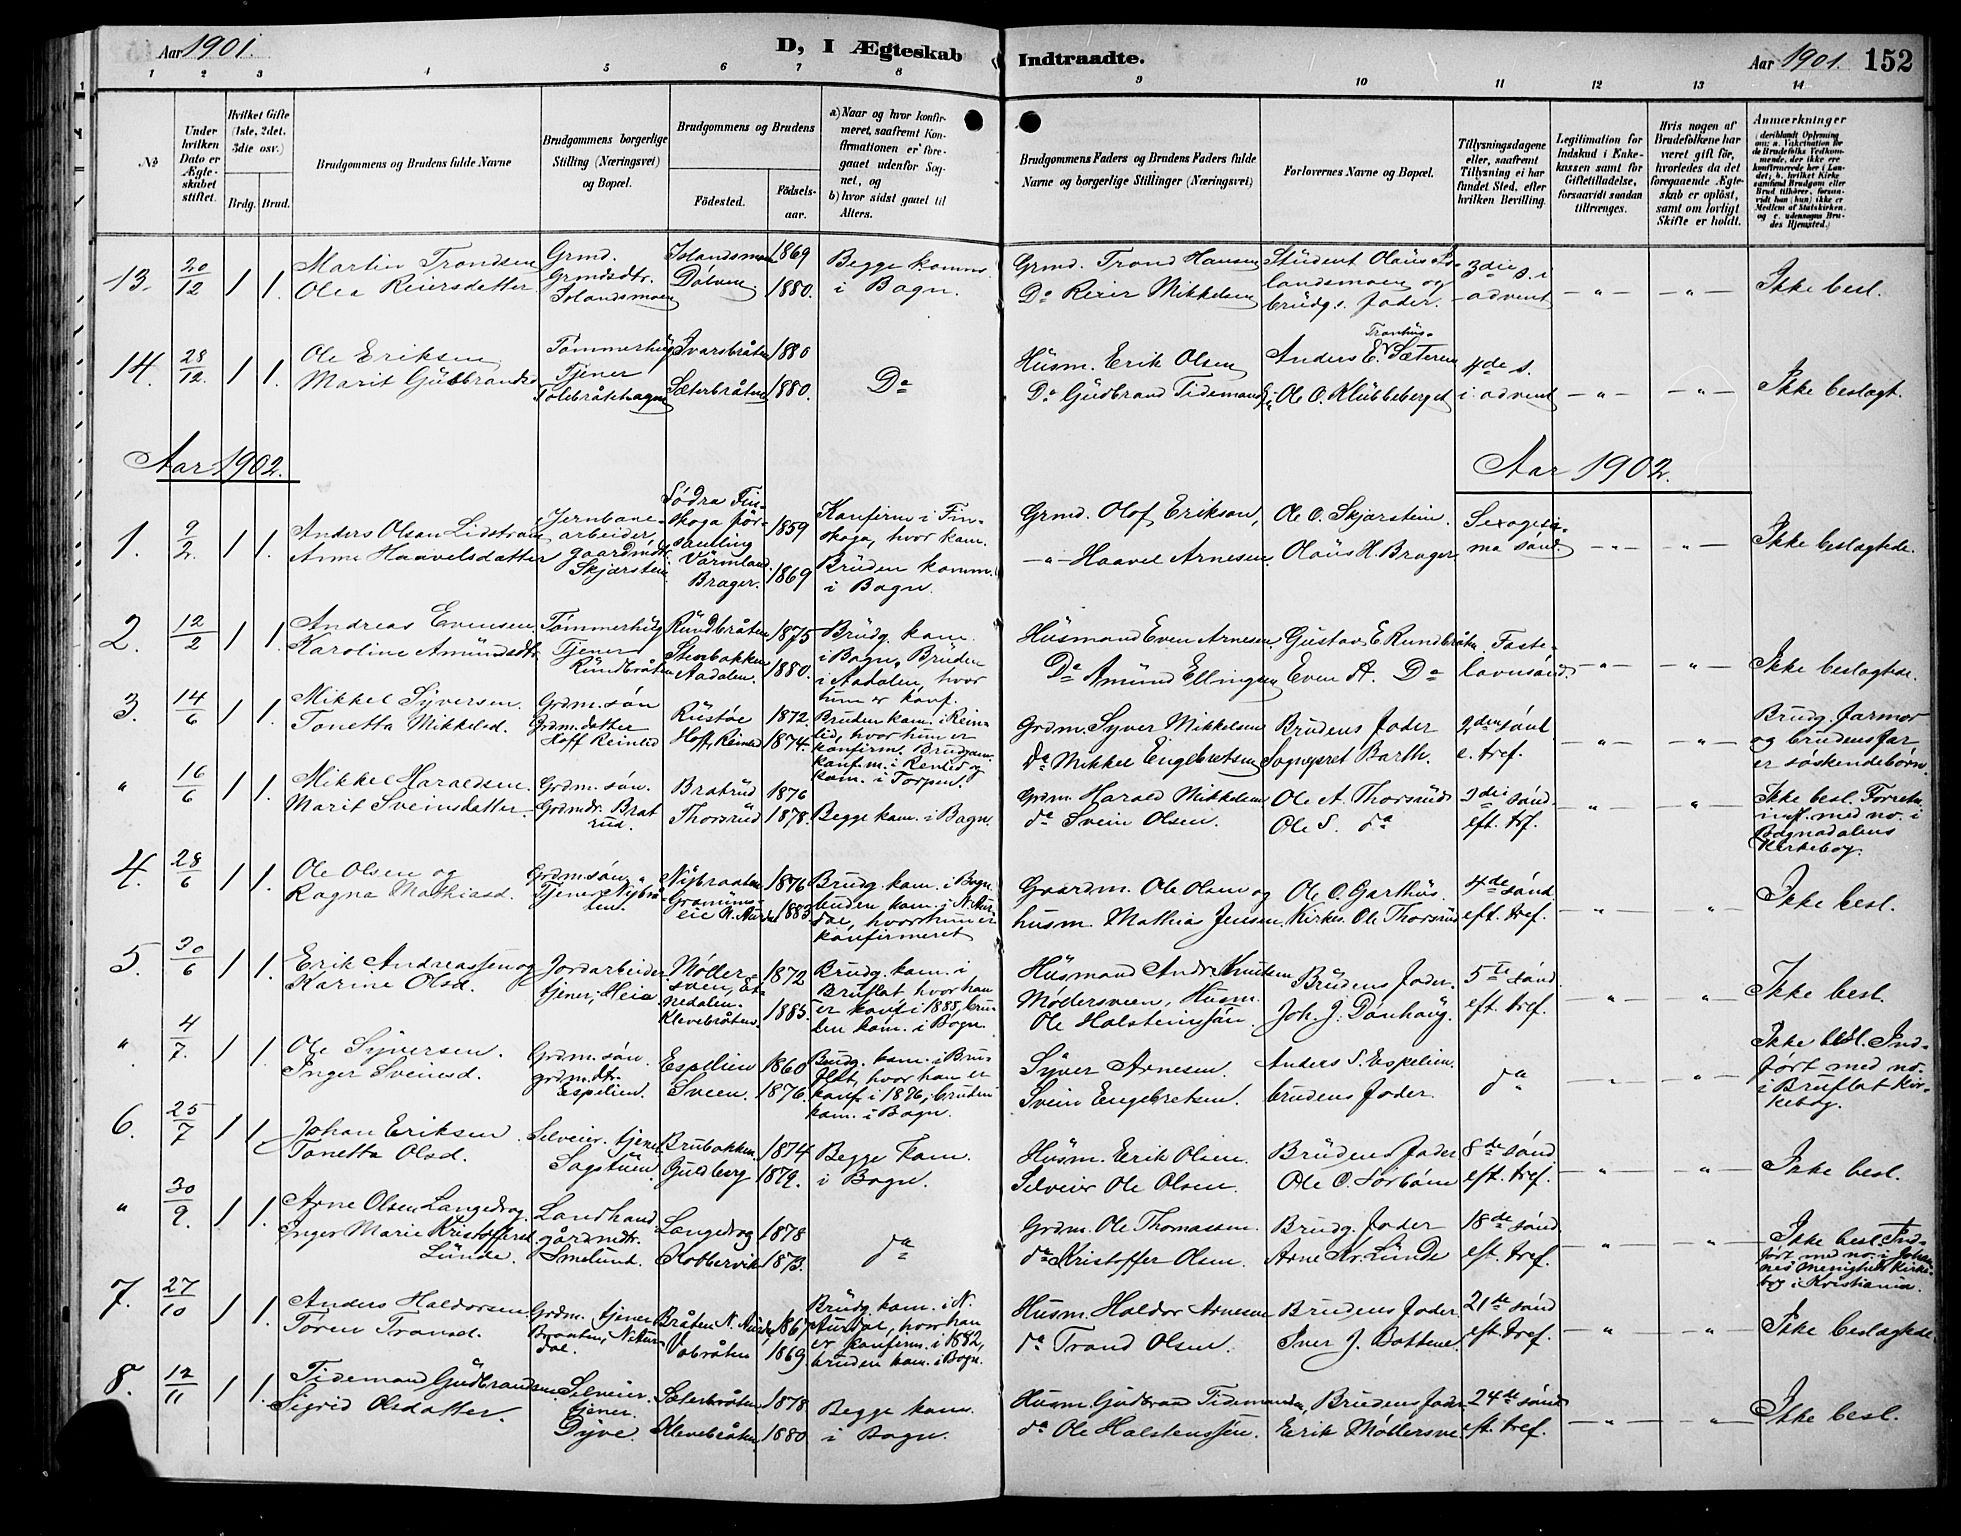 Aar 1901.
D, I Ægteskab Indtraadte.
Aar 1901. 152
1 2 3 4 5 6 7 8 9 10 11 12 13 14
№
Under hvilken Dato er Ægteskabet stiftet.
Hvilket Gifte (1ste, 2det, 3die osv.)
Brdg. Brud.
Brudgommens og Brudens fulde Navne
Brudgommens borgerlige Stilling (Næringsvei) og Bopæl.
Brudgommens og Brudens
Födested.
Födselsaar.
a) Naar og hvor konfirmeret, saafremt Konfirmationen er foregaaet udenfor Sognet, og
b) hvor sidst gaaet til Alters.
Brudgommens Faders og Brudens Faders fulde Navne og borgerlige Stillinger (Næringsvei)
Forlovernes Navne og Bopæl.
Tillysningsdagene eller, saafremt Tillysning ei har fundet Sted, efter hvilken Bevilling.
Legitimation for Indskud i Enkekassen samt for Giftetilladelse, forsaavidt saadan tiltrænges.
Hvis nogen af Brudefolkene har været gift för, hvorledes da det foregaaende Ægteskab er oplöst, samt om lovligt Skifte er holdt.
Anmærkninger
13. 20/12 1 1. Martin Trondsen Olea Reiersdatter Grmd. Grmdsdtr. Islandsmoen Islandsmoen Dölven 1869 1880. Begge komm. i Bagn. Grmd. Trond Hansen Do Reier Mikkelsen Student Olaüs Islandsmoen og brüdg.s. fader. 3die s. i advent — " — — " — Ikke besl.
14. 28/12. 1 1. Ole Eriksen Marit Güdbrandsd. Tömmerhüg Tjener Tolebråthagen Ivarsbråten Sæterbråten 1880 1880. Do Hüsm. Erik Olsen Do Güdbrand Tidemand Anders E. Tronhüs-Sæteren Ole O. Klübbeberget 4de s. i advent — " — — " — Ikke beslagt.
Aar 1902. Aar 1902.
1. 9/2 1 1. Anders Olsen Lidstrøm Anne Haavelsdatter Jernbanearbeider, gaardmdtr. Skjærstein Södra Finskoga församling Värmland. Brager. 1859 1869 Konfirm i Finskoga, hvor kom. Brüden komm. i Bagn. Grmd. Olof Erikson, — " — Haavel Arnesen. Ole O. Skjærstein. Olaüs H. Brager. Sexagesima sönd. — " — — " — Ikke beslagtede.
2. 12/2 1 1. Andreas Evensen. Karoline Amündsdtr. Tømmerhüg Tjener Ründbråten Ründbråten Stenbakken Aadalen. 1875 1880. Brüdg. kom. i Bagn, Brüden i Aadalen, hvor hun er konf. Hüsmand Even Arnesen. Do Amünd Ellingsen Gustav E. Rundbråten Even A. Do Fastelavnsönd. — " — — " — Ikke beslagtede.
3. 14/6 1 1. Mikkel Syversen. Tonetta Mikkelsd. Grdm. sön Grdm. datter Hoff Reinlid Rüstöe Hoff, Reinlid 1872. 1874. Bruden kom. i Reinlid, hvor hun er konfirm. Brudgom. konfim. i Reinlid og kom. i Torpen. Grdm. Syver Mikkelsen Do Mikkel Engebretsen Brüdens fader Sognepret Barth. 2den sönd e. tref. — " — — " — Brudg. farmor og brudens far er söskendebörn.
" 16/6 1 1. Mikkel Haraldsen. Marit Sveinsdatter. Grdm. sön. Grdmdtr. Bratrud. Bratrüd Thorsrüd 1876 1878. Begge kom. i Bagn. Grdm. Harald Mikkelsen do Svein Olsen. Ole A. Thorsrüd Ole S. do 3die sönd. eft. trf. — " — — " — Ikke besl. Forretn. utf. med no. i Bagnadalens Kirkebog.
4. 28/6 1 1. Ole Olsen og Ragna Mathiasd. Grdm. sön, Tjener Nybråten. Nybraaten Aurdal 1876 1883 Brudg. kom. i Bagn. bruden kom. i N. Aurdal, hvor hun er konfirmeret Gaardm. Ole Olsen og husm. Mathia Jensen. Ole O. Garthüs. Kirkes. Ole Thorsrüd 4de sönd. eft. tref. — " — — " — Ikke besl.
5. 30/6 1 1. Erik Andreassen og Karine Olsd. Jordarbeider, tjener, Heie Møllersveen, Etnedalen. Klevebråten. 1872 1885. Brudg. kom. i Bruflat hvor han er konf i 1888, bruden kom. i Bagn. Hüsmand Andr. Knutsen Møllersveen, Husm. Ole Halsteinssön. Brüdens fader. Joh. J. Dönhaüg. 5te sönd eft. tref. — " — — " — Ikke besl.
" 4/7. 1 1. Ole Syversen. Inger Sveinsd. Grdm. sön. grdm.dtr. Espelien. Espelien Sveen. 1860 1876. Brudg. kom. i Bruflat, hvor han er konf i 1876, bruden kom. i Bagn. Syver Arnesen. Svein Engebretsen. Anders S. Espelien. brudens fader. do — " — — " — Ikke besl. Indfört med no. i Bruflat kirkebog.
6. 25/7 1 1. Johan Eriksen. Tonetta Olsd. Selveier. tjener Sagstüen. Brubakken. Gudberg 1874 1879. Begge kom. i Bagn. Hüsm. Erik Olsen. Selveier Ole Olsen. Brüdens fader Ole O. Sörböen 8de sönd eft. tref. — " — — " — Ikke besl.
" 30/9. 1 1. Arne Olsen Langedrag. Inger Marie Kristoffersd. Lünde. Landhand. gårdmdtr. Smelund. Langedrag Kobbervik 1878 1873. do Grdm. Ole Thomassen. do Kristoffer Olsen. Brudg. fader Arne Kr. Lünde 18de sönd eft. tref. — " — — " — Ikke besl. Indfört med no. i Johannes Menighet Kirkebog i Kristiania.
7. 27/10 1 1. Anders Haldorsen. Tören Transd. Grdm. tjener Braaten, N. Aurdal. Bråten N. Aurdal, Vabråten 1867 1869 Brüdg. kom. i N. Aurdal, hvor han er konfirm. i 1882, bruden kom. i Bagn. Husm. Haldor Arnesen do Trand Olsen. Brudens fader. Iver J. Bottene. 21te sönd eft. tref. — " — — " — Ikke beslagtede.
8. 12/11 1 1. Tideman Güdbrandsen Sigrid Olsdatter. Selveier. tjener. Dyve. Sæterbråten Klevebråten 1878 1880 Begge kom. i Bagn. Husm. Gudbrand Tidemandsen, do Ole Halstenssön. Brüdens fader. Erik Møllersve. 24de sönd eft. tref. — " — — " — Ikke besl.